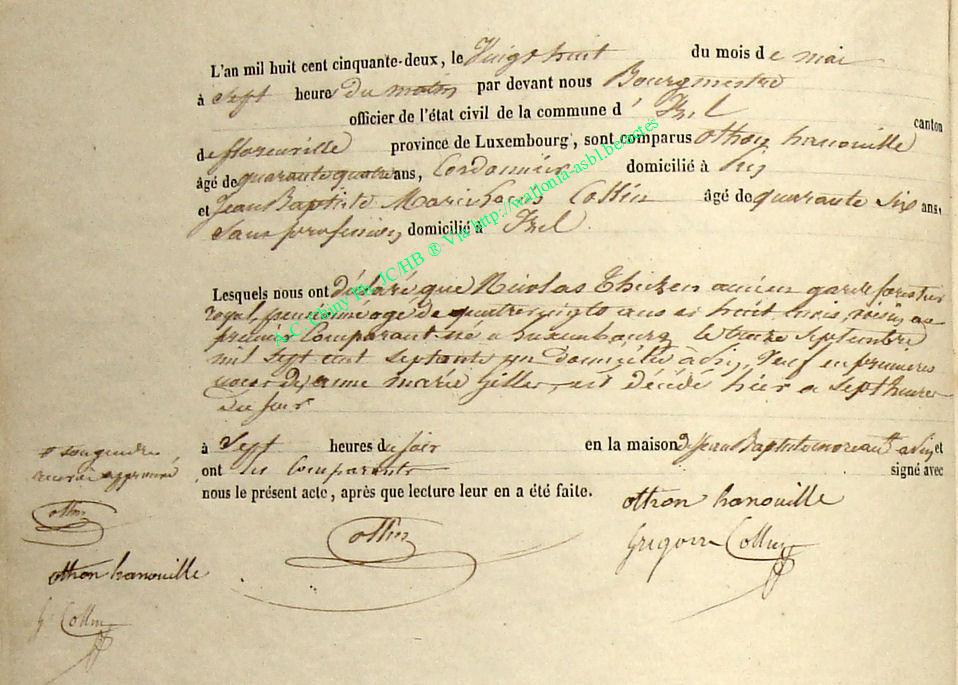 L'an mil huit cent cinquante-deux, le Vingt huit du mois de mai
à sept heure du matin par devant nous Bourgmestre
officier de l'état civil de la commune d' Izel canton
de florenville province de Luxembourg, sont comparus othon hanouille
âgé de quarante quatre ans, Cordonnier domicilié à
et Jean Baptiste Marie Collin âgé de quarante six ans,
Sans profession domicilié à Izel
Lesquels nous ont déclaré que Nicolas ancien garde forestier
royal, pensionné agé de quatre vingts ans et huit mois, voisin au
premier Comparant né a Luxembourg le treize Septembre
mil Sept cent Septante un domicilié a Veuf en premieres
noces de anne marie Giller, est décédé hier a Sept heures
du soir
à Sept heures du soir en la maison de Jean Baptiste moreau et
ont les Comparants signé avec
nous le présent acte, après que lecture leur en a été faite.
othon hanouille
Collin
approuvé
othon hanouille
G Collin
A.C. Chiny Ph. JC/HB ® Via http://wallonia-asbl.be/actes